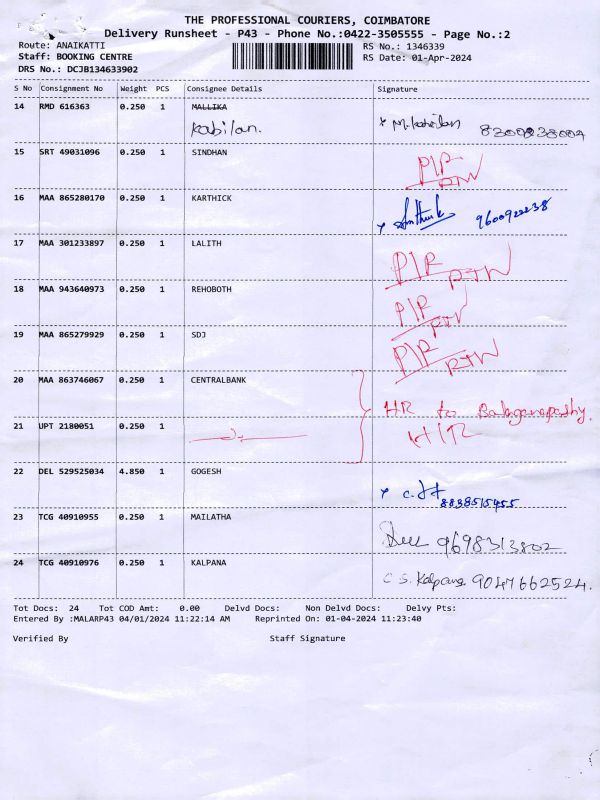 THE PROFESSIONAL COURIERS, COIMBATORE
Delivery Runsheet - P43 - Phone No.:0422-3505555 - Page No.:2
Route: ANAIKATTI RS No.: 1346339
Staff: BOOKING CENTRE RS Date: 01-Apr-2024
DRS No.: DCJB134633902
S No Consignment No Weight PCS Consignee Details Signature
14 RMD 616363 0.250 1 MALLIKA
Kabilan. x M. Kabilan
15 SRT 49031096 0.250 1 SINDHAN
P/R
RTW
16 MAA 865280170 0.250 1 KARTHICK
x
17 MAA 301233897 0.250 1 LALITH
P/R RTW
18 MAA 943640973 0.250 1 REHOBOTH
P/R RTW
19 MAA 865279929 0.250 1 SDJ
P/R RTW
20 MAA 863746067 0.250 1 CENTRALBANK
HR to
21 UPT 2180051 0.250 1
22 DEL 529525034 4.850 1 GOGESH
x 8838515455
23 TCG 40910955 0.250 1 MAILATHA
9698313802
24 TCG 40910976 0.250 1 KALPANA
C S. Kalpana 9047662524.
Tot Docs: 24 Tot COD Amt: 0.00 Delvd Docs: Non Delvd Docs: Delvy Pts:
Entered By :MALARP43 04/01/2024 11:22:14 AM Reprinted On: 01-04-2024 11:23:40
Verified By Staff Signature